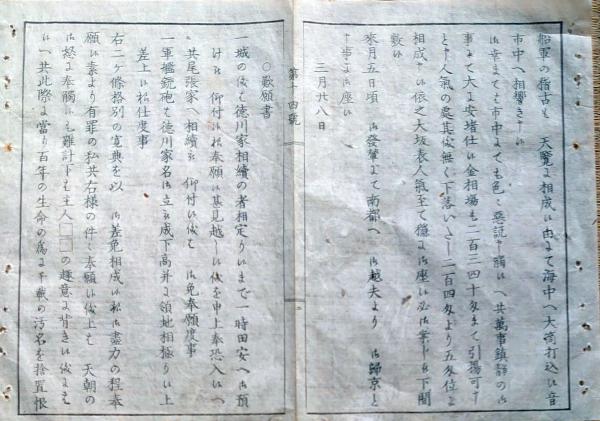 船軍の稽古も 天覧ニ相成候由ニて海中へ大砲打込候音
市中へ相響き申候
御幸ニても市中ニても色々惡説申觸候へ共萬事鎮静の御
事ニて大ニ安堵仕候金相場も二百三四十匁まて引揚可申
と申人氣の處其後無く下落いたし二百四匁より五匁位ニ
相成申候依之大坂表人氣至て穏ニ御座候必御案事被下間
敷候
來月五日頃 御發輦ニて南都へ 御越夫より 御歸京と
申事ニ御座候
三月廿八日
第十四號
○歎願書
一城の儀も徳川家相續の者相定り候まで一時田安へ御預
け被 仰付候様奉願候甚見越し候儀を申上奉恐入候へ
共尾張家へ相續被 仰付候儀も 御免奉願度事
一軍艦銃砲も徳川家名御立被成下高并ニ領地相極り候上
差上候様仕度事
右二ヶ條格別の寛典を以 御差免相成候様御盡力の程奉
願候素より有罪の私共右様の件々奉願候儀上も 天朝の
御怒ニ奉觸候も難計下も主人□□の趣意ニ背き候儀ニも
候へ共此際ニ當り百年の生命の爲ニ千載の汚名を捨置恨